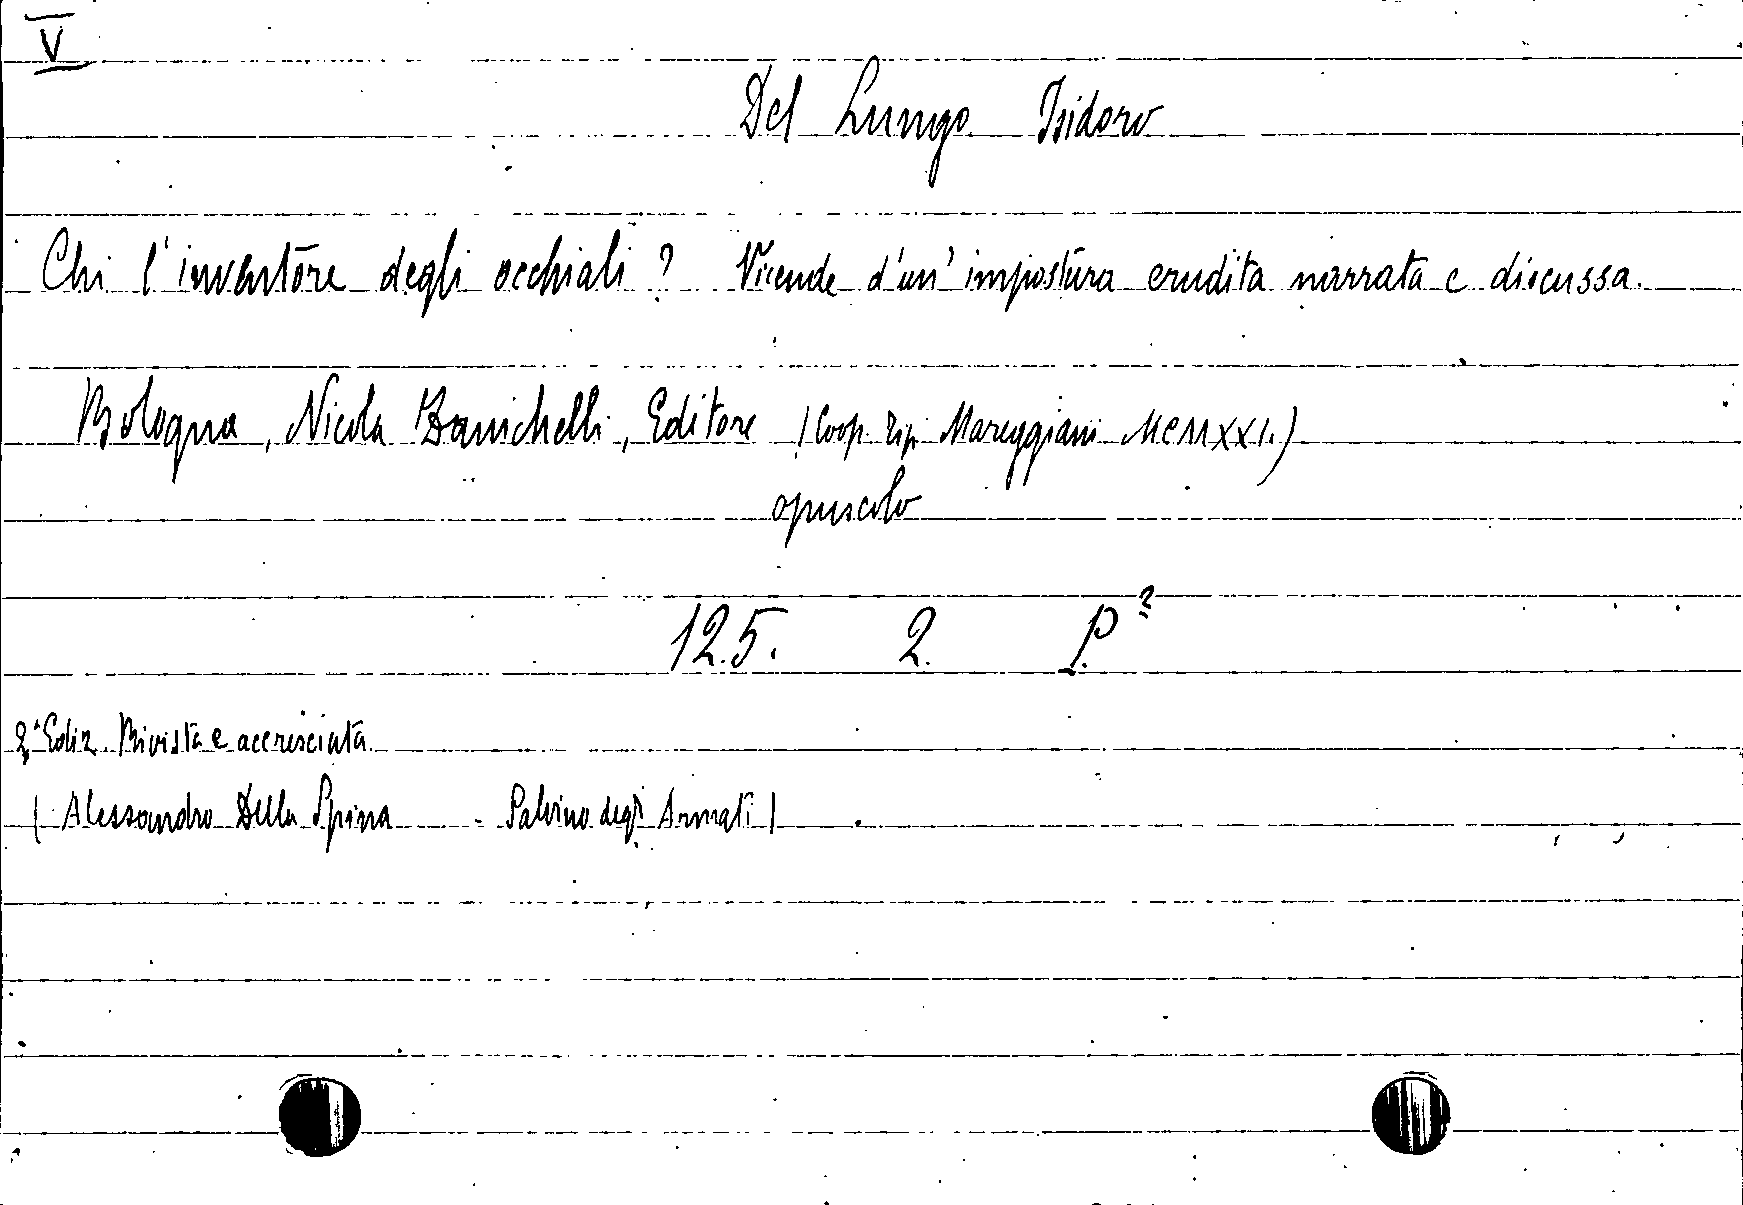 V
Del Lungo Isidoro
Chi l'inventore degli occhiali? Vicende d'un' impostura erudita narrata e discussa.
Bologna, Nicola Zanichelli, Editore (Coop. Tip. Mareggiani MCMXXI.)
opuscolo
125. 2. P.²
2ª Ediz. Rivista e accresciuta
(Alessandro Della Spina - Salvino degli Armati)